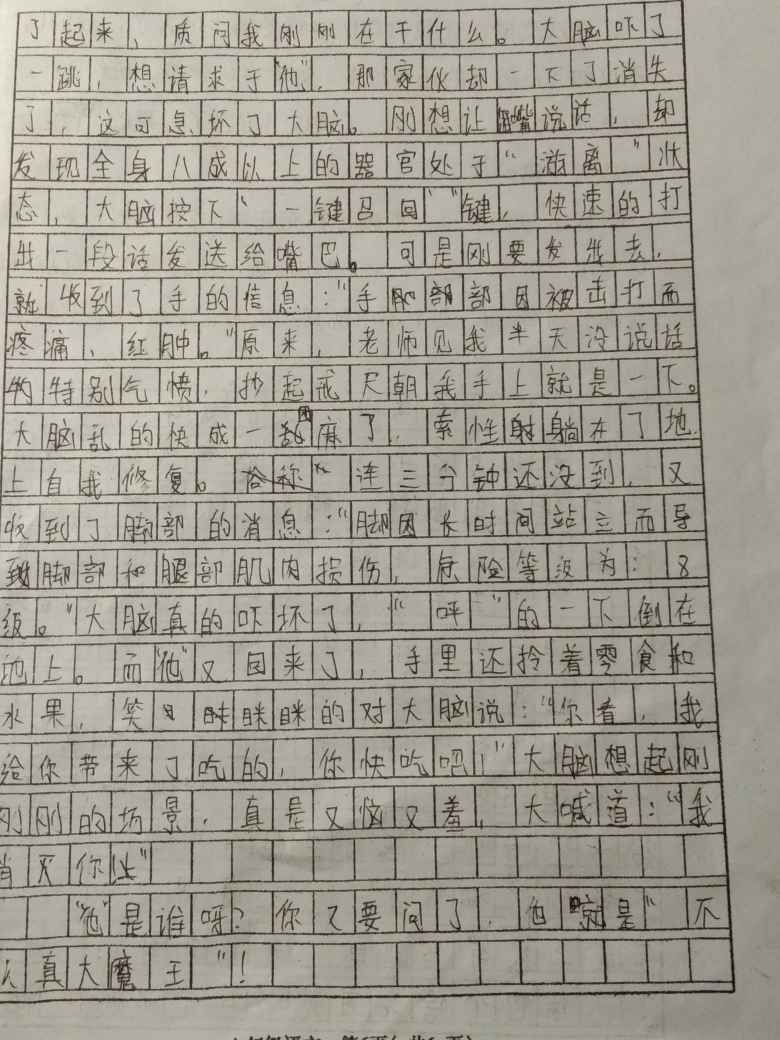 了起来，质问我刚刚在干什么。大脑吓了
一跳，想请求于“他”，那家伙却一下了消失
了，这可急坏了大脑。刚想让嘴说话，却
发现全身八成以上的器官处于“游离”状
态，大脑按下“一键召回”“键，快速的打
出一段话发送给嘴巴。可是刚要发出去，
就收到了手的信息：“手部部因被击打而
疼痛、红肿。”原来，老师见我半天没说话
的特别气愤，抄起戒尺朝我手上就是一下。
大脑乱的快成一团麻了，索性躺在了地
上自我修复。连三分钟还没到，又
收到了脚部的消息：“脚因长时间站立而导
到脚部和腿部肌肉损伤，危险等级为：8
级。”大脑真的吓坏了，“呯”的一下倒在
地上。而“他”又回来了，手里还拎着零食和
水果，笑眯眯的对大脑说：“你看，我
给你带来了吃的，你快吃吧！”大脑想起刚
刚刚的场景，真是又恼又羞，大喊道：“我
肖灭你”
“他”是谁呀？你又要问了，他“就是”不
认真大魔王”！